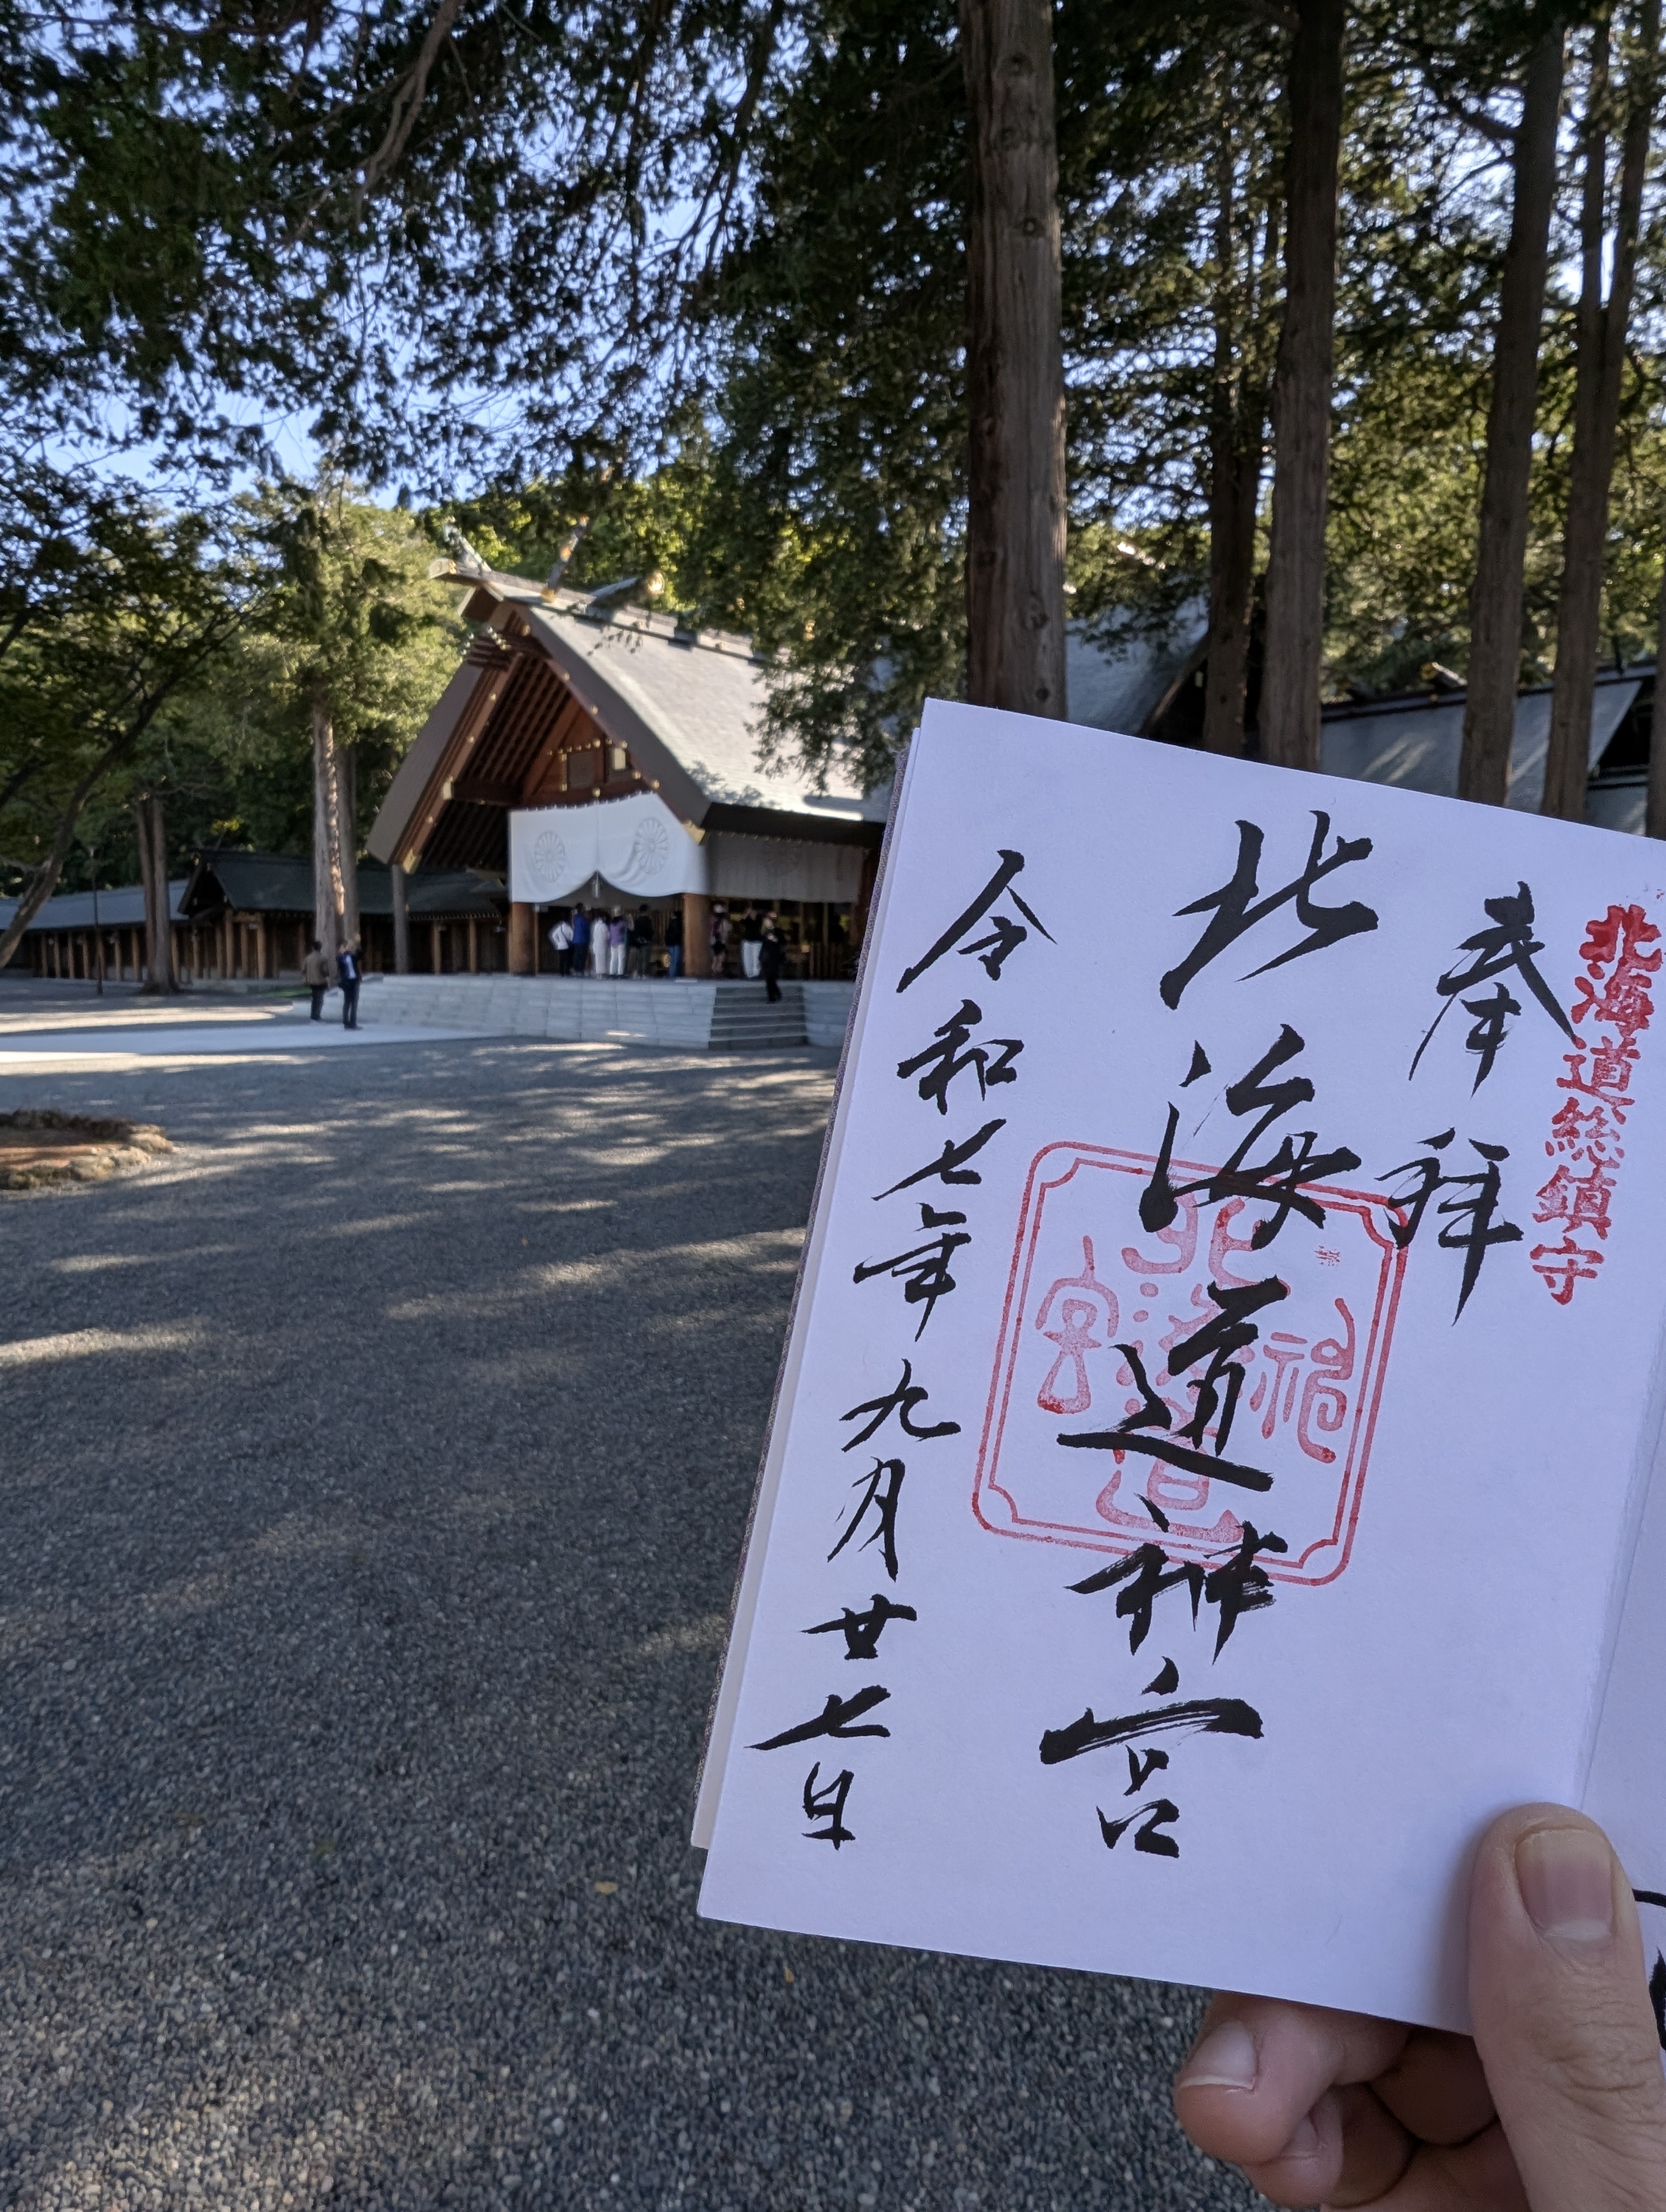 北海道総鎮守
奉拝
北海道神宮
令和七年九月廿七日